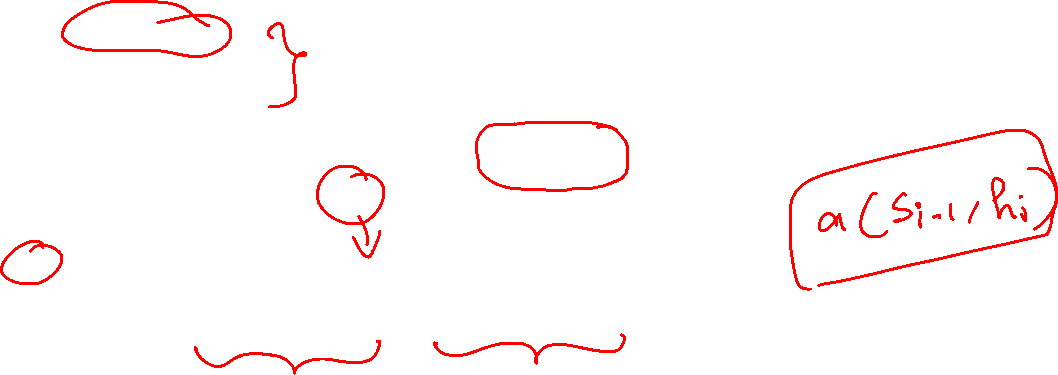 a(s_{i-1}, h_i)